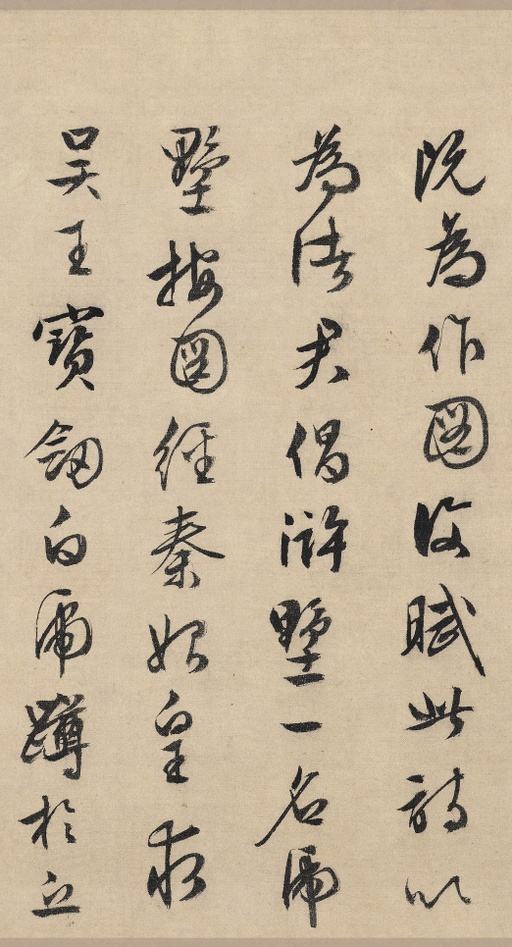 既為作圖復賦此詩以
為諸君倡滸墅一名虎
墅按圖經秦始皇求
吳王寶劍白虎蹲於丘